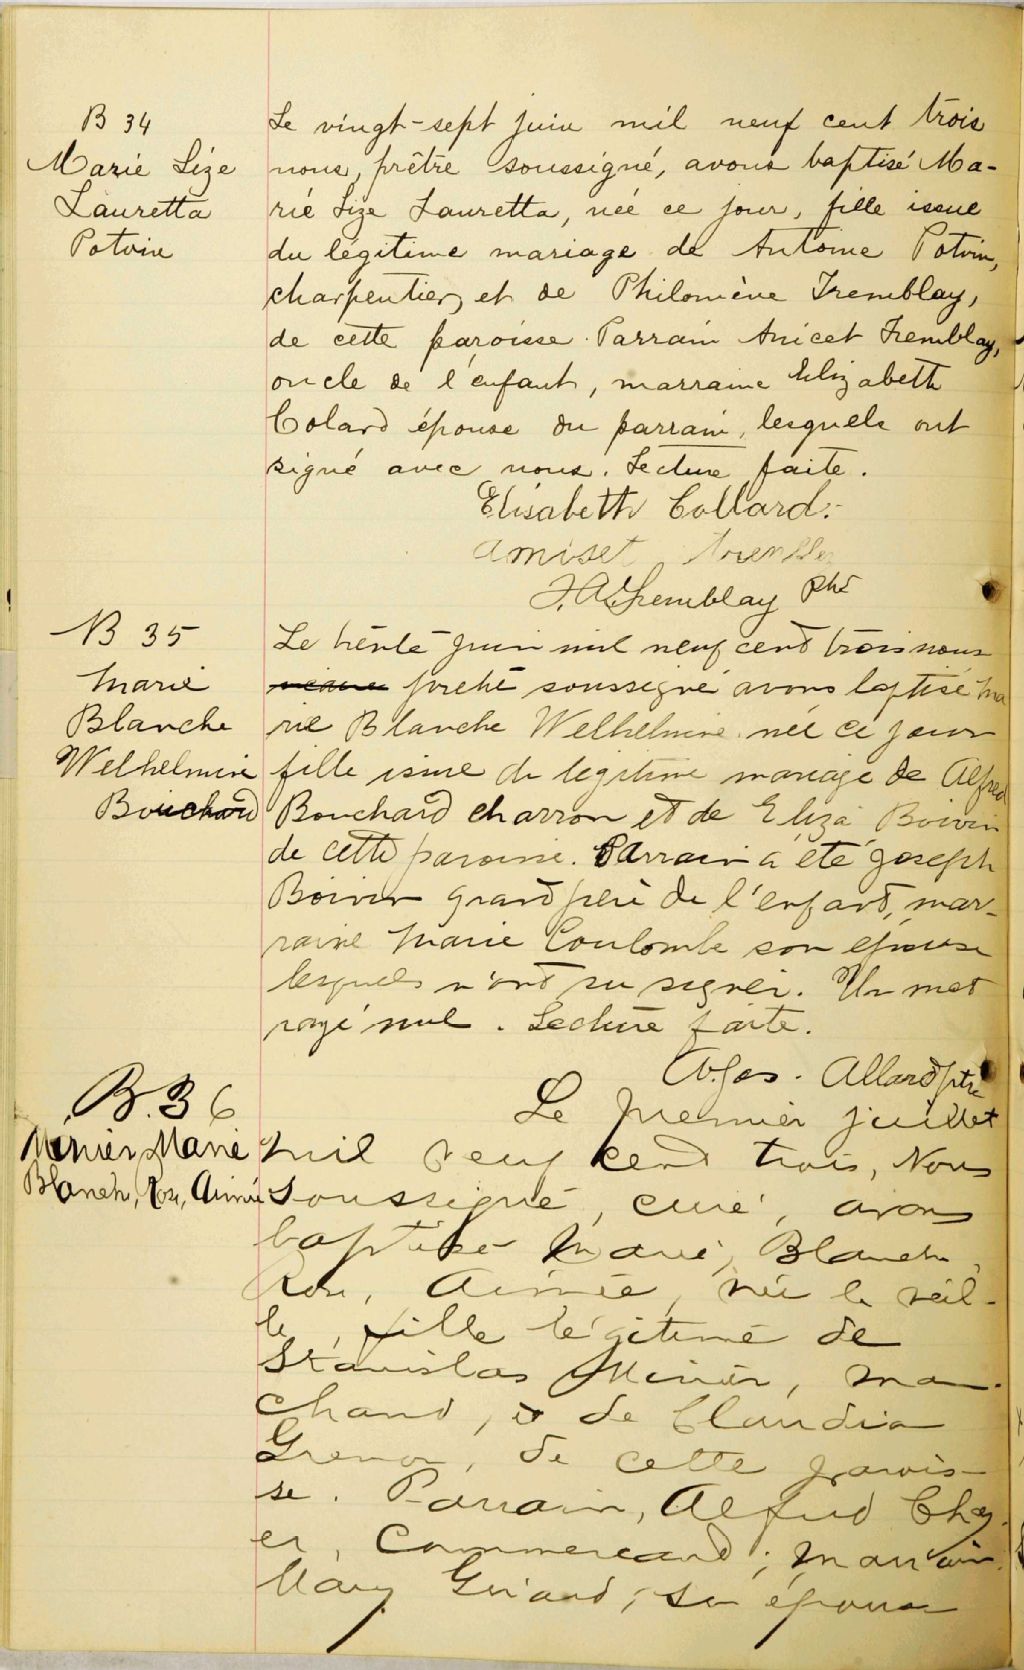 B 34
Marie Lize
Lauretta
Potvin
Le vingt-sept juin mil neuf cent trois
nous, prêtre soussigné, avons baptisé Ma-
rie Lize Lauretta, née ce jour, fille issue
du légitime mariage de Antoine Potvin,
charpentier, et de Philomène Tremblay,
de cette paroisse. Parrain Anicet Tremblay,
oncle de l'enfant, marraine Elizabeth
Colard épouse du parrain, lesquels ont
signé avec nous. Lecture faite.
Elisabeth Collard.
Amiset
J. A. Tremblay Ptre
B 35
Marie
Blanche
Welhelmine
Bouchard
Le trente juin mil neuf cent trois nous
prêtre soussigné avons baptisé Ma
rie Blanche Welhelmine née ce jour
fille issue du légitime mariage de Alfred
Bouchard charron et de Eliza Boivin
de cette paroisse. Parrain a été Joseph
Boivin grand père de l'enfant, mar-
raine Marie Coulombe son épouse
lesquels n'ont su signer. Un mot
rayé nul. Lecture faite.
Jos. Allard ptre
B. 36
Minier, Marie
Blanche, Rose, Aimée
Le premier juillet
mil neuf cent trois, Nous
soussigné, curé, avons
baptisé Marie, Blanche,
Rose, Aimée, née la veil-
le, fille légitime de
Stanislas Minier, mar-
chand, et de Claudia
Grenon, de cette parois-
se. Parrain, Alfred
commercant; marraine
Mary Girard, son épouse